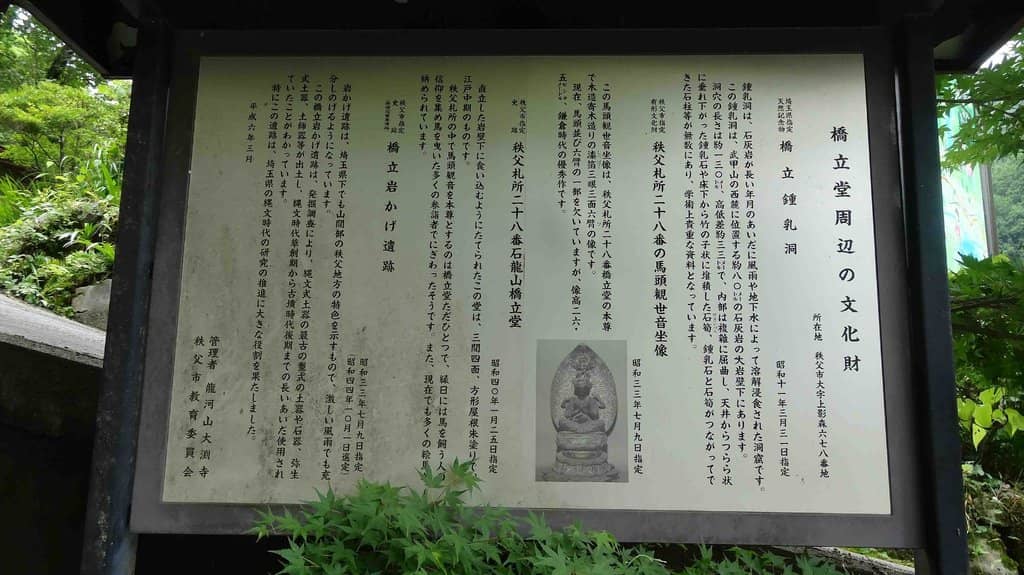 橋立堂周辺の文化財
所在地 秩父市大字上影森六七八番地
埼玉県指定
天然記念物
橋立鍾乳洞
昭和十一年三月三一日指定
鍾乳洞は、石灰岩が長い年月のあいだに風雨や地下水によって溶解浸食された洞窟です。
この鍾乳洞は、武甲山の西麓に位置する約八〇㍍の石灰岩の大岩壁下にあります。
洞穴の長さは約一三〇㍍、高低差約三三㍍で、内部は複雑に屈曲し、天井からつらら状
に垂れ下がった鍾乳石や床下から竹の子状に堆積した石筍、鍾乳石と石筍がつながってで
きた石柱等が無数にあり、学術上貴重な資料となっています。
秩父市指定
有形文化財
秩父札所二十八番の馬頭観世音坐像
昭和三三年七月九日指定
この馬頭観世音坐像は、秩父札所二十八番橋立堂の本尊
で木造寄木造りの漆箔三眼三面六臂の像です。
現在、馬頭並び六臂の一部を欠いていますが、像高二六・
五㌢、鎌倉時代の優秀作です。
秩父市指定
史跡
秩父札所二十八番石龍山橋立堂
昭和四〇年一月二五日指定
直立した岩壁下に食い込むようにたてられたこの堂は、三間四面、方形屋根朱塗りで
江戸中期のものです。
秩父札所の中で馬頭観音を本尊とするのは橋立堂ただひとつで、縁日には馬を飼う人の
信仰を集め馬を曳いた多くの参詣者でにぎわったそうです。また、現在でも多くの絵馬
納められています。
秩父市指定
史跡
橋立岩かげ遺跡
昭和三三年七月九日指定
昭和四四年一〇月一日選定
岩かげ遺跡は、埼玉県下でも山間部の秩父地方の特色を示すもので、激しい風雨でも充
分しのげるようになっています。
この橋立岩かげ遺跡は、発掘調査により、縄文式土器の最古の型式の土器や石器、弥生
式土器、土師器等が出土し、縄文時代草創期から古墳時代後期までの長いあいだ使用され
ていたことがわかっています。
特にこの遺跡は、埼玉県の縄文時代の研究の推進に大きな役割を果たしました。
平成六年三月
管理者 龍河山大渕寺
秩父市教育委員会